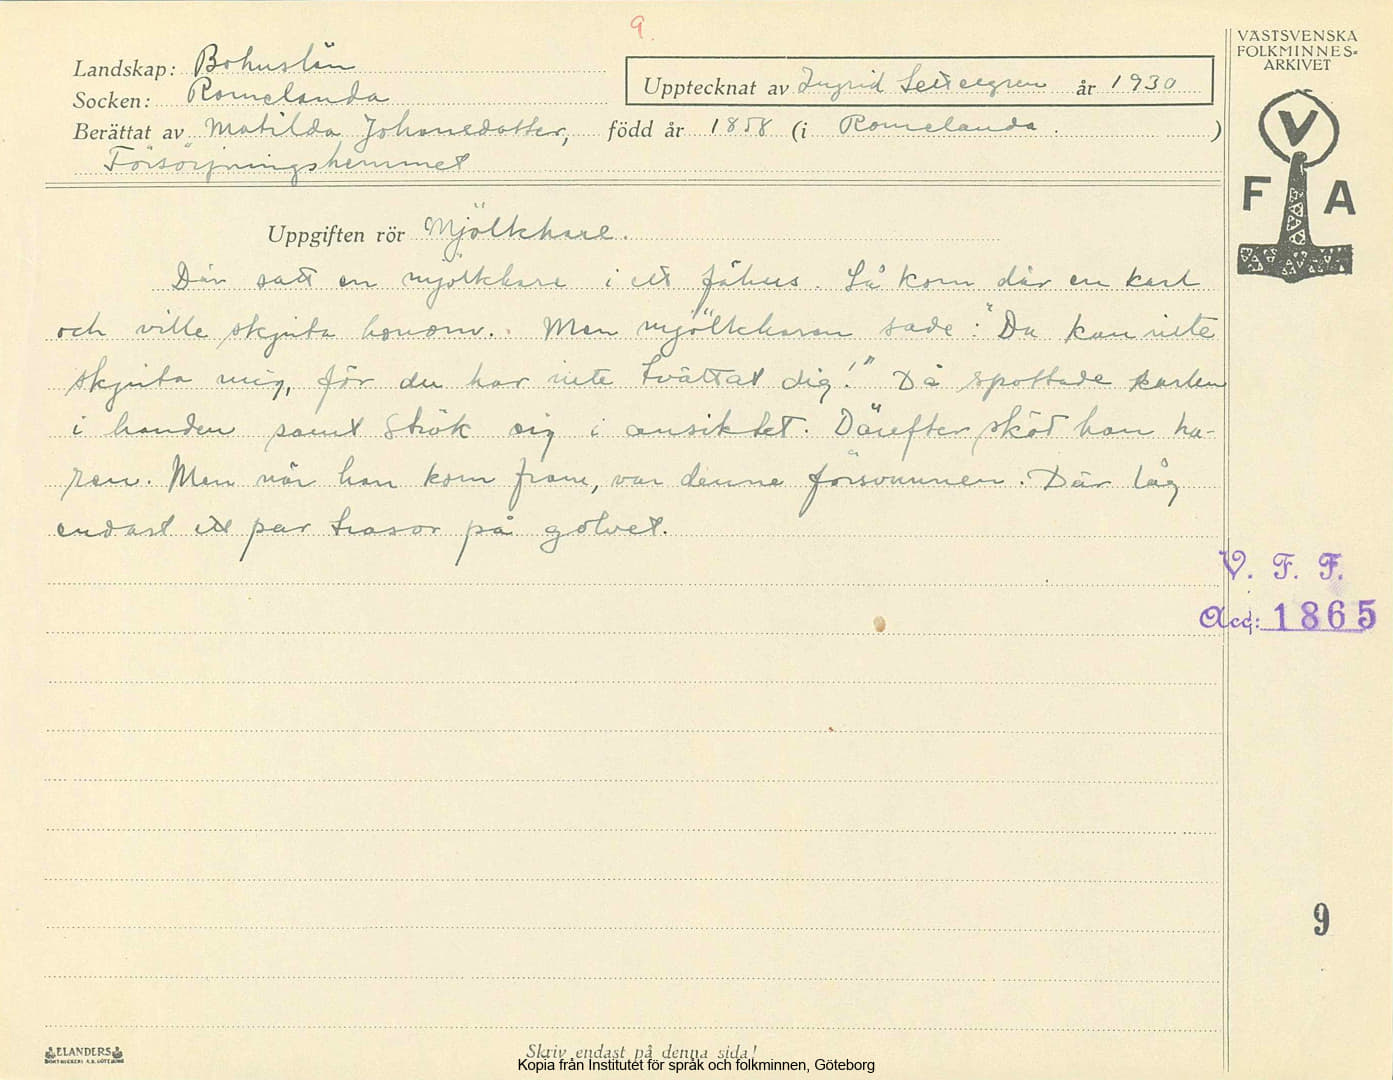 9.
VÄSTSVENSKA
FOLKMINNES-
ARKIVET
V
F A
Landskap: Bohuslän
Socken: Romelanda
Upptecknat av Ingrid Settergren år 1930
Berättat av Matilda Johansdotter, född år 1858 (i Romelanda. )
Försörjningshemmet
Uppgiften rör Mjölkhare.
Där satt en mjölkhare i ett fähus. Så kom där en karl
och ville skjuta honom. Men mjölkharen sade: "Du kan inte
skjuta mig, för du har inte tvättat dig!" Då spottade karlen
i handen samt strök sig i ansiktet. Därefter sköt han ha-
ren. Men när han kom fram, var denne försvunnen. Där låg
endast ett par trasor på golvet.
V. F. F.
Acc: 1865
9
ELANDERS
BOKTRYCKERI A.B. GÖTEBORG
Skriv endast på denna sida!
Kopia från Institutet för språk och folkminnen, Göteborg